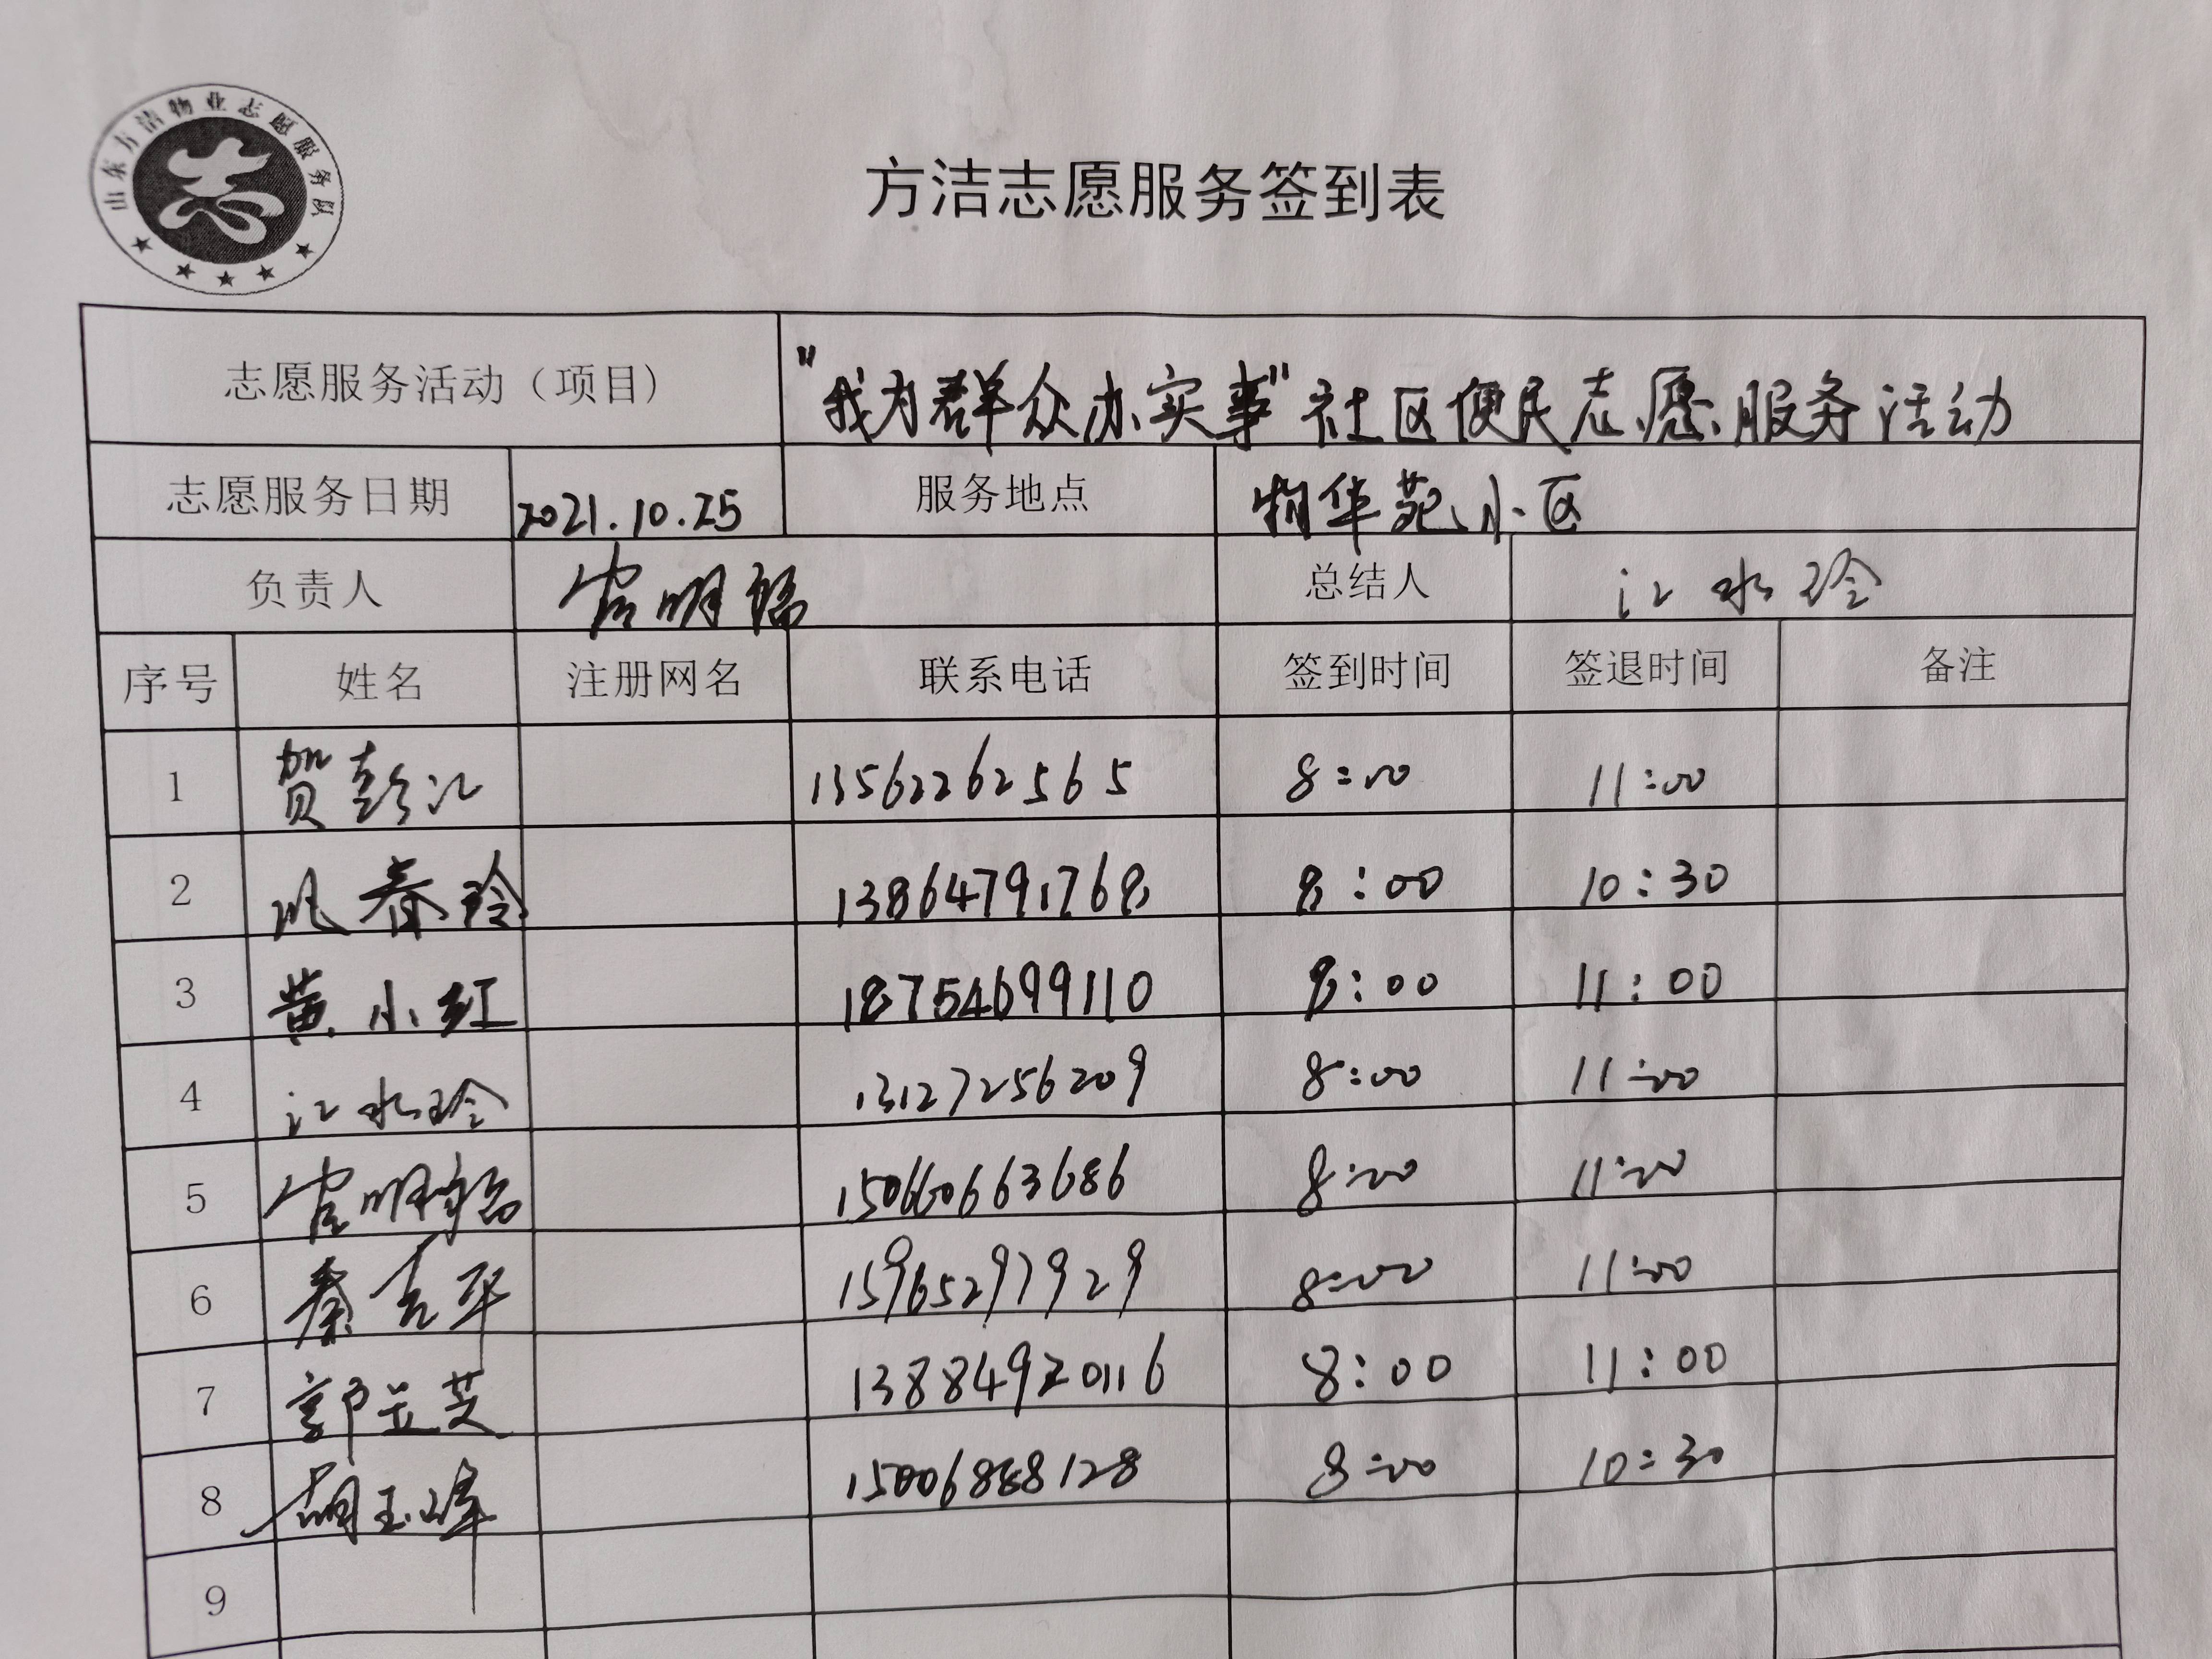 山东方洁物业志愿服务队
方洁志愿服务签到表
志愿服务活动（项目） "我为群众办实事"社区便民志愿服务活动
志愿服务日期 2021.10.25 服务地点 物华苑小区
负责人 官明福 总结人 江水玲
序号 姓名 注册网名 联系电话 签到时间 签退时间 备注
1 贺彭江 13562262565 8:00 11:00
2 春玲 13864791768 8:00 10:30
3 黄小红 18754699110 8:00 11:00
4 江水玲 13127256209 8:00 11:00
5 官明福 15066063686 8:00 11:00
6 秦吉平 15965297929 8:00 11:00
7 郭立芝 13884920116 8:00 11:00
8 胡玉峰 15006888128 8:00 10:30
9